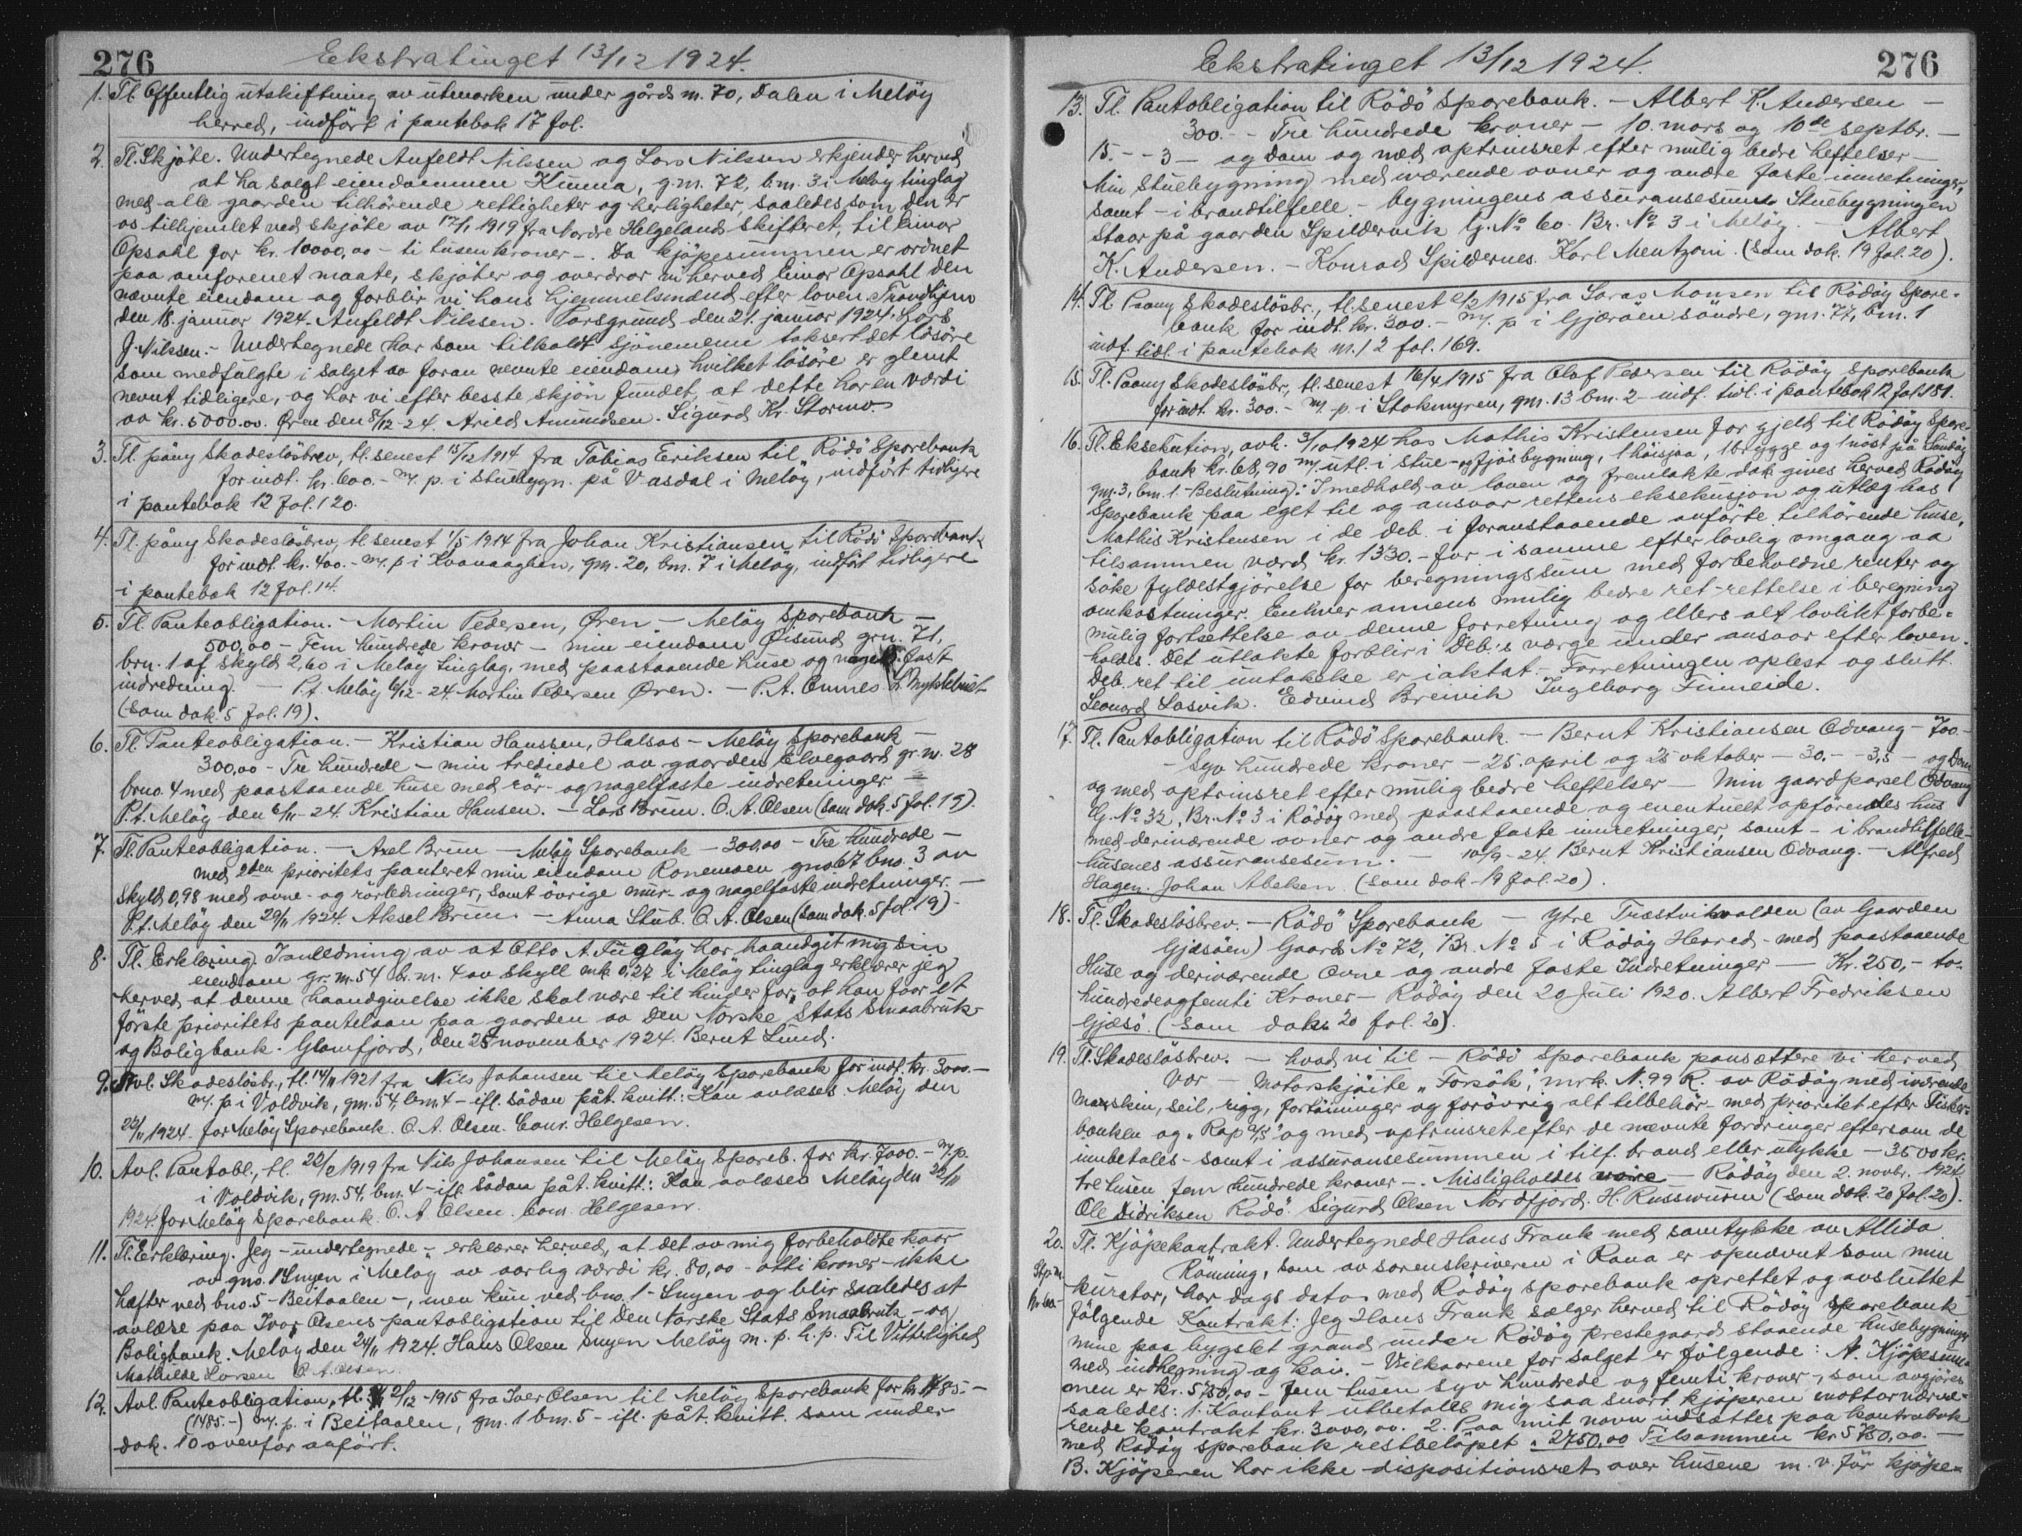 276
Ekstratinget 13/12 1924.
1. Tl. Offentlig utskiftning av utmarken under gårds nr. 70, Dalen i Meløy
herred, indført i pantebok 17 fol.
2. Tl. Skjøte. Undertegnede Anfeldt Nilssen og Lars Nilssen erkjender herved
at ha solgt eiendommen Kunna, g.nr. 72, b.nr. 3 i Meløy tinglag
med alle gaarden tilhørende rettigheter og herligheter, saaledes som den er
os tilhjemlet ved skjøte av 17/1 1919 fra Nordre Helgelands skifteret, til Einar
Opsahl for kr. 10000,00 - ti tusen kroner -. Da kjøpesummen er ordnet
paa omforenet maate, skjøter og overdrar vi herved Einar Opsahl den
nævnte eiendom og forblir vi hans hjemmelsmænd efter loven. Trondhjem
den 18. januar 1924. Anfeldt Nilssen. Porsgrund den 21. januar 1924. Lars
J. Nilssen. - Undertegnede har som tilkaldt skjønsmenn taksert det løsøre
som medfulgte i salget av foran nevnte eiendom, hvilket løsøre er glemt
nevnt tidligere, og har vi efter beste skjøn fundet, at dette har en værdi
av kr. 5000.00. Ørnes den 8/12-24. Arild Amundsen. Sigurd Kr. Stormo.
3. Tl. påny Skadesløsbrev, tl. senest 15/12 1914 fra Tobias Eriksen til Rødø Sparebank
for indt. kr. 600.- m/ p. i Stuebygn. på Vasdal i Meløy, indført tidligere
i pantebok 12 fol. 120.
4. Tl. påny Skadesløsbrev, tl. senest 1/5 1914 fra Johan Kristiansen til Rødø Sparebank
for indt. kr. 400.- m/ p i Kvanaaghen, gnr. 20, bnr. 7 i Meløy, indført tidligere
i pantebok 12 fol. 14.
5. Tl. Panteobligation. - Martin Pedersen, Øren - Meløy Sparebank -
500,00 - Fem hundrede kroner - min eiendom Øisund grn. 71,
brn. 1 af skyld 2,60 i Meløy tinglag, med paastaaende huse og nagelfast
indredning. - P.t. Meløy 6/12-24 Martin Pedersen Øren. - P.A. Ennes L. Myklebust
(som dok. 5 fol. 19).
6. Tl. Panteobligation. - Kristian Hanssen, Halsos - Meløy Sparebank -
300,00 - Tre hundrede - min trediedel av gaarden Elvegaard gr. nr. 28
brno. 4 med paastaaende huse med rør- og nagelfaste indretninger -
P.t. Meløy den 6/11-24. Kristian Hansen. - Lars Brun. O. A. Olsen (som dok. 5 fol. 19).
7. Tl. Panteobligation. - Axel Brun - Meløy Sparebank - 300,00 - Tre hundrede -
med 2den prioritets panteret min eiendom Ronemoen gno 67 bno. 3 av
skyld 0,98 med ovne- og rørledninger, samt øvrige mur- og nagelfaste indretninger. -
P.t. Meløy den 29/11 1924. Aksel Brun. - Anna Stub. O. A. Olsen (som dok. 5 fol 19).
8. Tl. Erklæring. I anledning av at Otto A. Fugløy har haandgit mig sin
eiendom gr. nr. 54 br. nr. 4 av skyll mk 0,27 i Meløy tinglag erklærer jeg
herved, at denne haandgivelse ikke skal være til hinder for, at han faar et
første prioritets pantelaan paa gaarden av Den Norske Stats Smaabruk-
og Boligbank. Glomfjord, den 25 november 1924. Bernt Lund.
9. Avl. Skadesløsbr., tl. 14/11 1921 fra Nils Johansen til Meløy Sparebank for indt. kr. 3000.-
m/. p i Voldvik, gnr. 54, bnr. 4 - ifl. sådan påt. kvitt.: Kan avlæses. Meløy den
22/11 1924. for Meløy Sparebank. O. A. Olsen. Conr. Helgesen.
10. Avl. Pantobl., tl. 22/2 1919 fra Nils Johansen til Meløy Spareb. for kr. 7000.- m/. p.
i Voldvik, gnr. 54, bnr. 4 - ifl. sådan påt. kvitt.: Kan avlæses Meløy den 22/11
1924. for Meløy Sparebank. O. A. Olsen. Conr. Helgesen.
11. Tl. Erklæring. Jeg - undertegnede - erklærer herved, at det av mig forbeholdte kaar
av gno. 1 Engen i Meløy av aarlig værdi kr. 80,00 - otti kroner - ikke
hæfter ved bno. 5 - Beitaalen -, men kun ved bno. 1 - Engen og blir saaledes at
avlæse paa Ivar Olsens pantobligation til Den Norske Stats Smaabruk- og
Boligbank. Meløy den 24/11 1924. Hans Olsen Engen Meløy m. p. h. p. Til Vitterlighed
Mathilde Larsen O. A. Olsen.
12. Avl. Panteobligation, tl. 2/12-1915 fra Iver Olsen til Meløy Sparebank for kr. 1485.-
(1485.-) m/. p. i Beitaalen, gnr. 1 bnr. 5 - ifl. påt. kvitt. som under
dok. 10 ovenfor anført.
Ekstratinget 13/12 1924.
276
13. Tl. Pantobligation til Rødø Sparebank. - Albert K. Andersen -
300. - - Tre hundrede kroner - 10. mars og 10de septbr. -
15. - - 3 - og Dom og med oprinsret efter mulig bedre heftelser -
Min Stuebygning med iværende ovner og andre faste innretninger,
samt - i brandtilfelle - bygningens assuransesum. Stuebygningen
staar på gaarden Spildervik G. No 60. Br. No 3 i Meløy. - Albert
K. Andersen. - Konrad Spildernes. Karl Mentzoni. (Som dok. 19 fol. 20).
14. Tl. Paany Skadesløsbr., tl. senest 2/2 1915 fra Lars Monsen til Rødøy Spare-
bank for indt. kr. 300.- m/. p i Gjærøen søndre, gnr. 77, bnr. 1
indf. tidl. i pantebok nr. 12 fol. 169.
15. Tl. Paany Skadesløsbr, tl. senest 16/4 1915 fra Olaf Pedersen til Rødøy Sparebank
for indt. kr. 300.- m/. p. i Stokmyren, gnr. 13 bnr. 2 - indf. tidl. i pantebok 12 fol 181.
16. Tl. Eksekution, avh. 3/10 1924 hos Mathis Kristensen for gjeld til Rødøy Spare-
bank kr. 68,90 m/ utl. i stue- og fjøsbygning, 1 høisjaa, 1 brygge og 1 nøst på Sundøy
gnr. 3, bnr. 1 - Beslutning: I medhold av loven og fremlakte dok. gives herved Rødøy
Sparebank paa eget til og ansvar rettens eksekusjon og utlæg hos
Mathis Kristensen i de deb. i foranstaaende anførte tilhørende huse,
tilsammen værd kr. 1330.- for i samme efter lovlig omgang aa
søke fyldestgjørelse for beregningssum med forbeholdne renter og
omkostninger. Enhver annens mulig bedre ret - rettelse i beregning
mulig fortsettelse av denne forretning og ellers alt lovlikt forbe-
holdes. Det utlakte forblir i Deb's værge under ansvar efter loven.
Deb. ret til unntakelse er iaktat. - Forretningen oplest og slutt.
Leonard Løsvik. Edvind Breivik Ingeborg Finneide.
17. Tl. Pantobligation til Rødø Sparebank. - Bernt Kristiansen Odvang - 700.-
- Syv hundrede kroner - 25. april og 25 oktober - 30.- - 3,5 - og Dom
og med oprinsret efter mulig bedre heftelser - Min gaardparsel Odvang
G. No 32, Br. No 3 i Rødøy med paastaaende og eventuelt opførendes hus
med derinærende ovner og andre faste innretninger, samt - i brandtilfelle -
husenes assuransesum. - 10/9-24. Bernt Kristiansen Odvang. - Alfred
Hagen. Johan Abeken. (Som dok - 19 fol. 20).
18. Tl. Skadesløsbrev. - Rødø Sparebank - Ytre Træstvikvolden (av Gaarden
Gjæsøen) Gaards No 72, Br. No 5 i Rødøy Herred - med paastaaende
Huse og derværende Ovne og andre faste Indretninger - Kr. 250,- to-
hundredeogfemti Kroner - Rødøy den 20 Juli 1920. Albert Fredriksen
Gjæsø. (Som dok. 20 fol. 20).
19. Tl. Skadesløsbrev. - hvad vi til - Rødø Sparebank pansættere vi herved
Vor - Motorskjøite "Forsøk", mrk. N. 99 R. av Rødøy med iværende
maskin, seil, rigg, fortøininger og forøvrig alt tilbehør - med prioritet efter Fisker-
banken og "Rap A/S" og med oprinsret efter de nævnte fordringer eftersom de
innbetales - samt i assuransesummen i tilf. brand eller ulykke - 3500 kr.
tre tusen fem hundrede kroner -. Misligholdes våre - Rødøy den 2. novbr. 1924
Ole Didriksen Rødø. Sigurd Olsen Nordfjord. H. Russwurm (Som dok. 20 fol. 20).
20. Tl. Kjøpekontrakt. Undertegnede Hans Frank med samtykke av Allida
Rønning, som av sorenskriveren i Rana er opnævnt som min
kurator, har dags dato med Rødøy sparebank oprettet og avsluttet
følgende Kontrakt: Jeg Hans Frank sælger herved til Rødøy sparebank
mine paa bygslet grund under Rødøy prestegaard staaende husebygninger
med indhegning og kai. - Vilkaarene for salget er følgende: A. Kjøpesum-
men er kr. 5750,00 - fem tusen syv hundrede og femti kroner, som avgjøres
saaledes: 1. Kontant utbetales mig saa snart kjøperen mottar nærvæ-
rende kontrakt kr. 3000,00. 2. Paa mit navn indsættes paa kontrabok
med Rødøy sparebank restbeløpet " 2750,00 Tilsammen kr 5750,00. -
B. Kjøperen har ikke dispositionsret over husene m. v. før kjøpe-